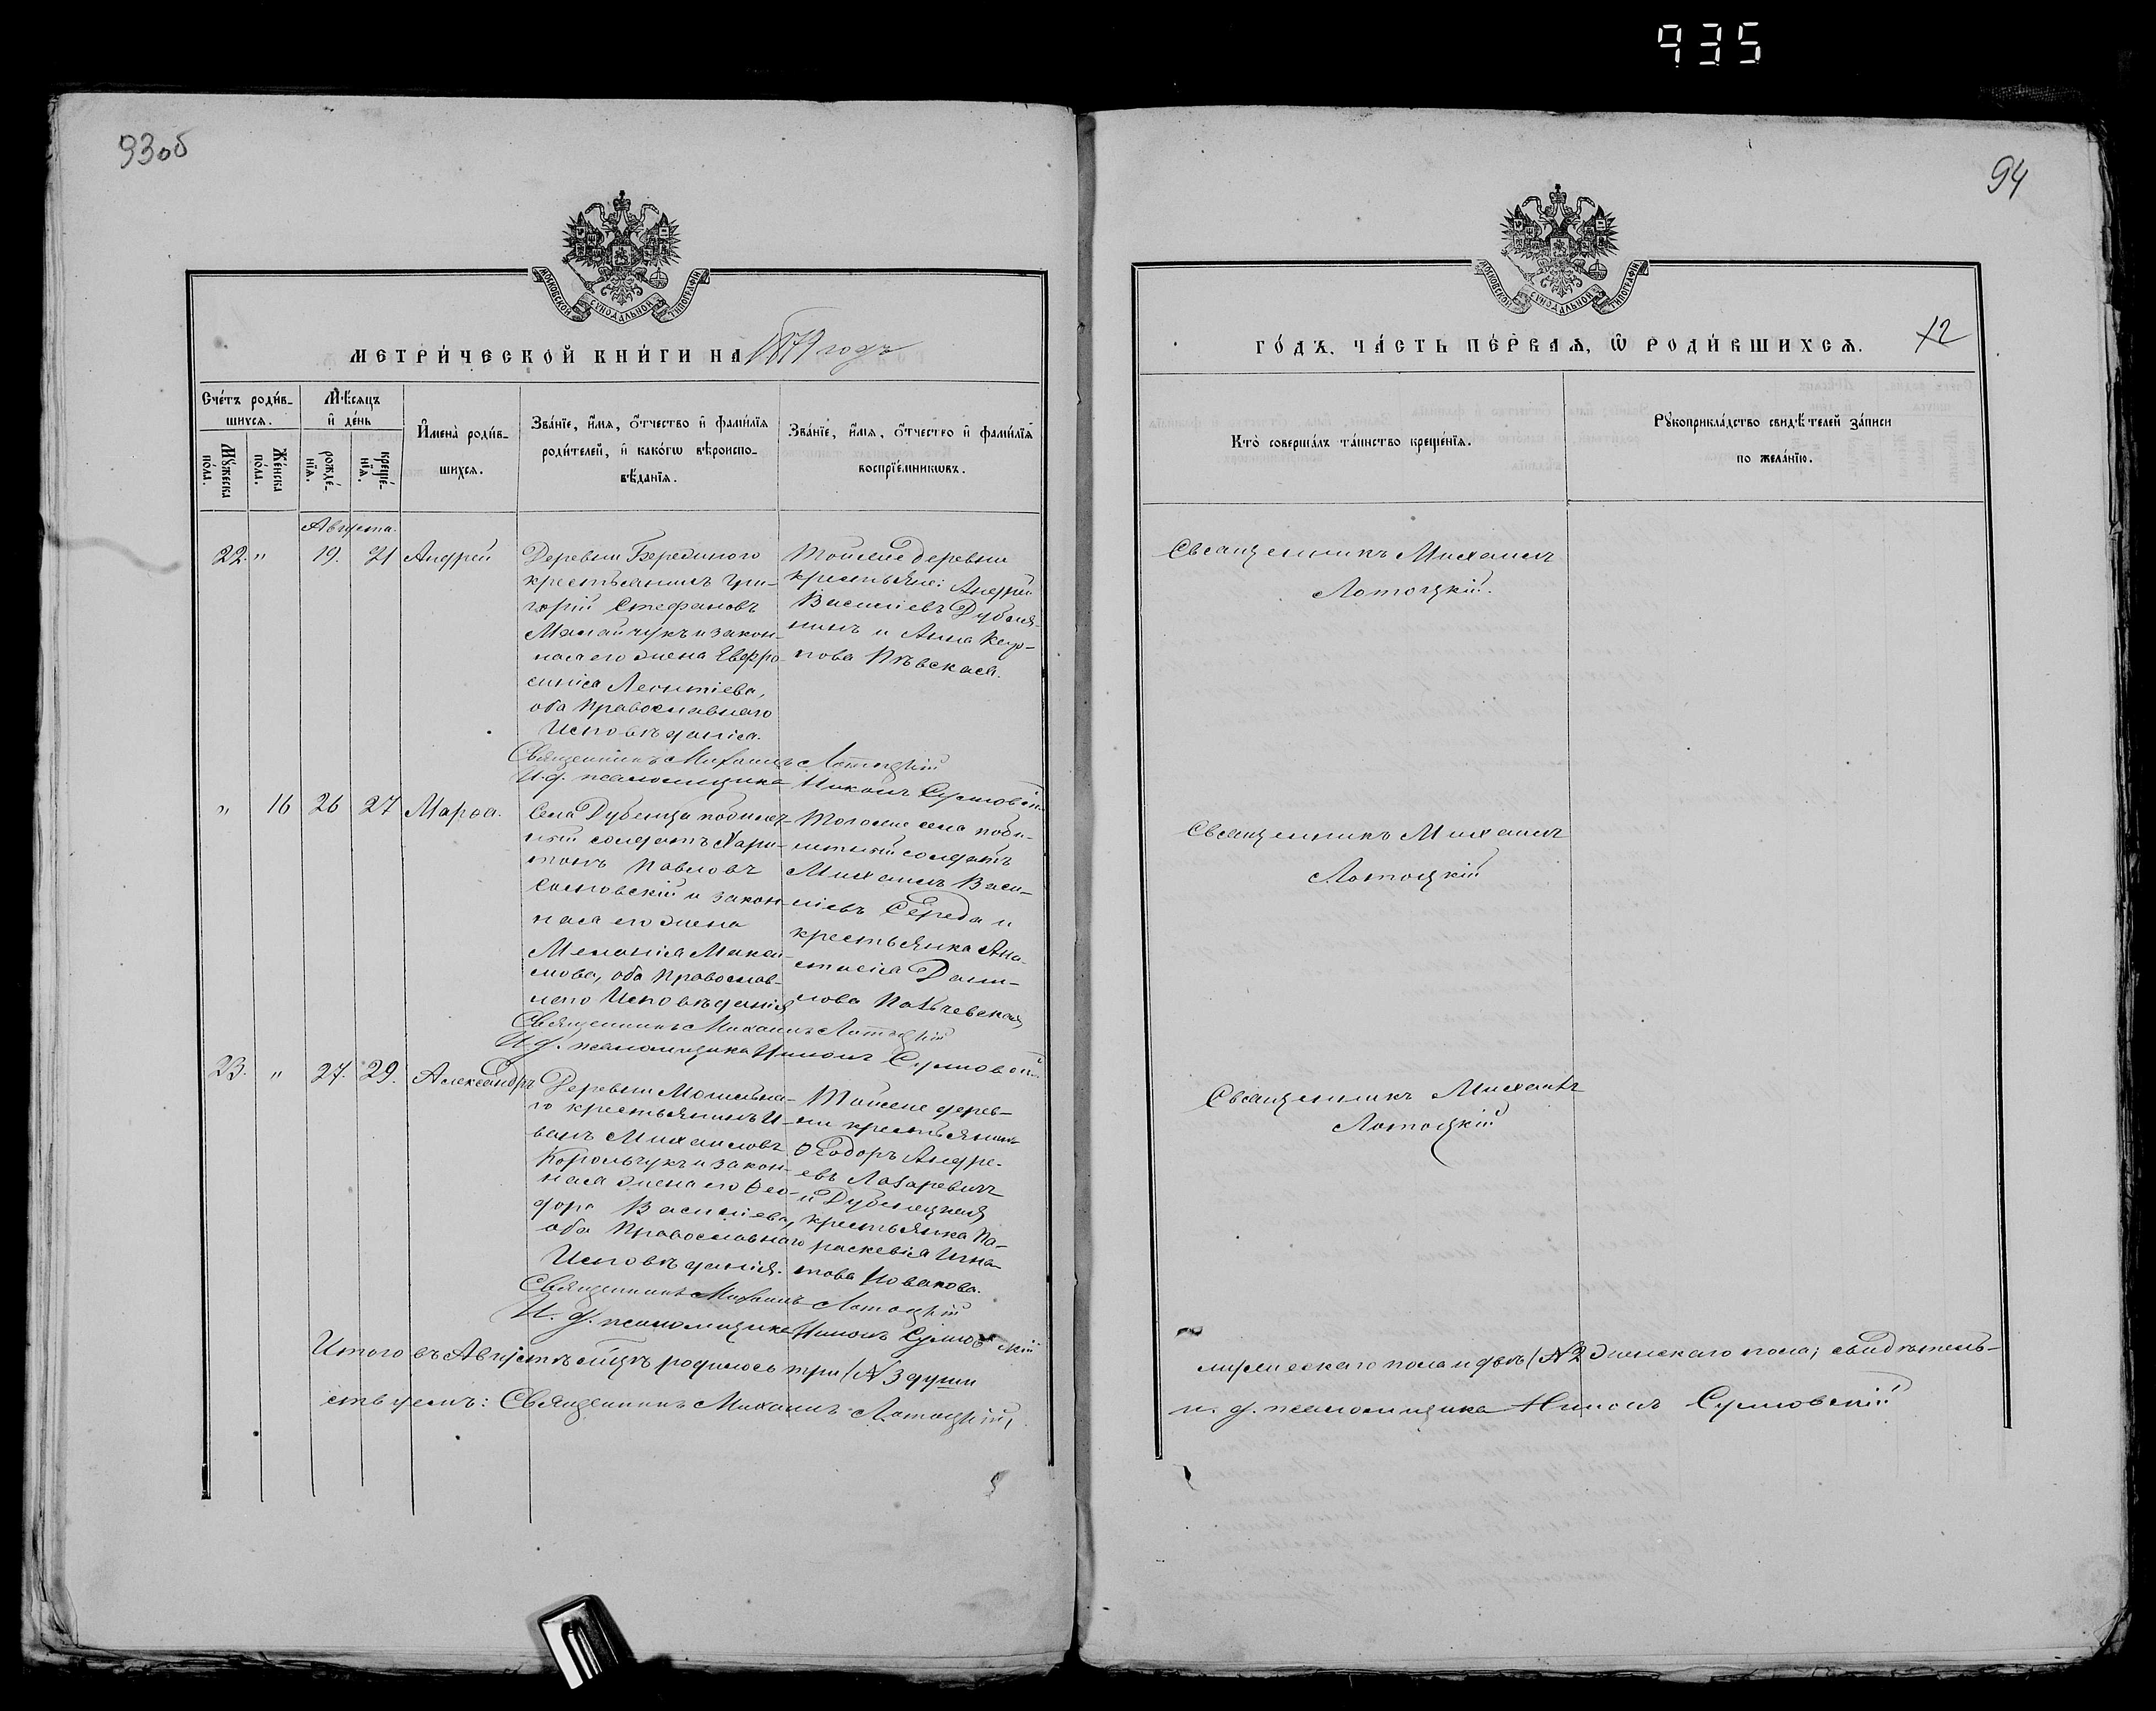 935
93об
МОСКОВСКОЙ СѴНОДАЛЬНОЙ ТИПОГРАФІИ
МЕТРИ́ЧЕСКОЙ КНИ́ГИ НА 1879 годъ
Сче́тъ роди́в-
шихсѧ.
Мꙋ́жеска
по́ла.
Же́нска
по́ла.
Мѣ́сѧцъ
и҆ де́нь
рожде́-
нїѧ.
креще́-
нїѧ.
И҆мена̀ роди́в-
шихсѧ.
Зва́нїе, и҆́мѧ, ѻ҆́тчество и҆ фами́лїѧ
роди́телей, и҆ како́гѡ вѣроиспо-
вѣ́данїѧ.
Зва́нїе, и҆́мѧ, ѻ҆́тчество и҆ фами́лїѧ
воспрїе́мникѡвъ.
Августа.
22. " 19. 21 Андрей
Деревни Берединого
крестьянинъ Гри-
горій Стефановъ
Малайчукъ и закон-
ная его жена Евфро-
синія Леонтіева,
оба Православнаго
Исповѣданія.
Тойже деревни
крестьяне: Андрей
Василіевъ Дубеля-
нинъ и Анна Кар-
пова Пѣвская.
Священникъ Михаилъ Лотоцкій
И. д. псаломщика
" 16 26 27 Марѳа.
Села Дубенца побилет-
ный солдатъ Хари-
тонъ Павловъ
Сосновскій и закон-
ная его жена
Меланія Макси-
мова, оба Православ-
наго Исповѣданія
Тогоже села поби-
летный солдатъ
Михаилъ Васи-
ліевъ Середа и
крестьянка Ана-
стасія Дани-
лова
Священникъ Михаилъ Лотоцкій
И. д. псаломщика
23. " 27. 29. Александръ
Деревни Могильна-
го крестьянинъ И-
ванъ Михаиловъ
Корольчукъ и закон-
ная жена его Ѳео-
дора Василіева,
оба Православнаго
Исповѣданія.
Тойже дерев-
ни крестьянинъ
Ѳеодоръ Андре-
евъ Лазаревичъ
и Дубенецкая
крестьянка Па-
раскевія Игна-
това Новакова.
Священникъ Михаилъ Лотоцкій
И. д. псаломщика
Итого въ Августѣ мцѣ родилось три (№ 3 души
ствуемъ: Священникъ Михаилъ Лотоцкій,
94
МОСКОВСКОЙ СѴНОДАЛЬНОЙ ТИПОГРАФІИ
ГО́ДЪ, ЧА́СТЬ ПЕ́РВАѦ, Ѡ҆ РОДИ́ВШИХСѦ.
12
Кто̀ соверша́лъ та́инство креще́нїѧ.
Рꙋкоприкла́дство свидѣ́телей за́писи
по жела́нїю.
Священникъ Михаилъ
Лотоцкій.
Священникъ Михаилъ
Лотоцкій
Священникъ Михаилъ
Лотоцкій
женскаго пола; свидѣтель-
и. д. псаломщика